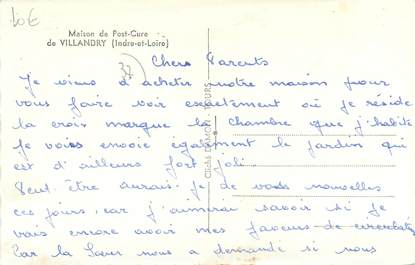 20€
Maison de Post-Cure
de VILLANDRY (Indre-et-Loire)
37
Chers Parents
Je viens d'acheter notre maison pour
vous faire voir exactement où je réside
la croix marque la chambre que j'habite
Je vous envoie également le jardin qui
est d'ailleurs fort joli.
Peut être aurais je de vous nouvelles
ces jours, car j'aimerai savoir si je
vais encore avoir mes faveurs de circulation
Car la Sœur nous a demandé si nous
Cliché DAMON - TOURS